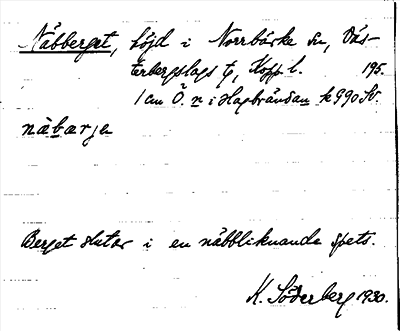 Näbberget, höjd i Norrbärke sn, Väs-
terbergslags tg, Kopp. l. 195.
1 cm Ö. n i Hagbrändan k 990 SV.
näbarje
Berget slutar i en näbbliknande spets.
K. Söderberg 1930.